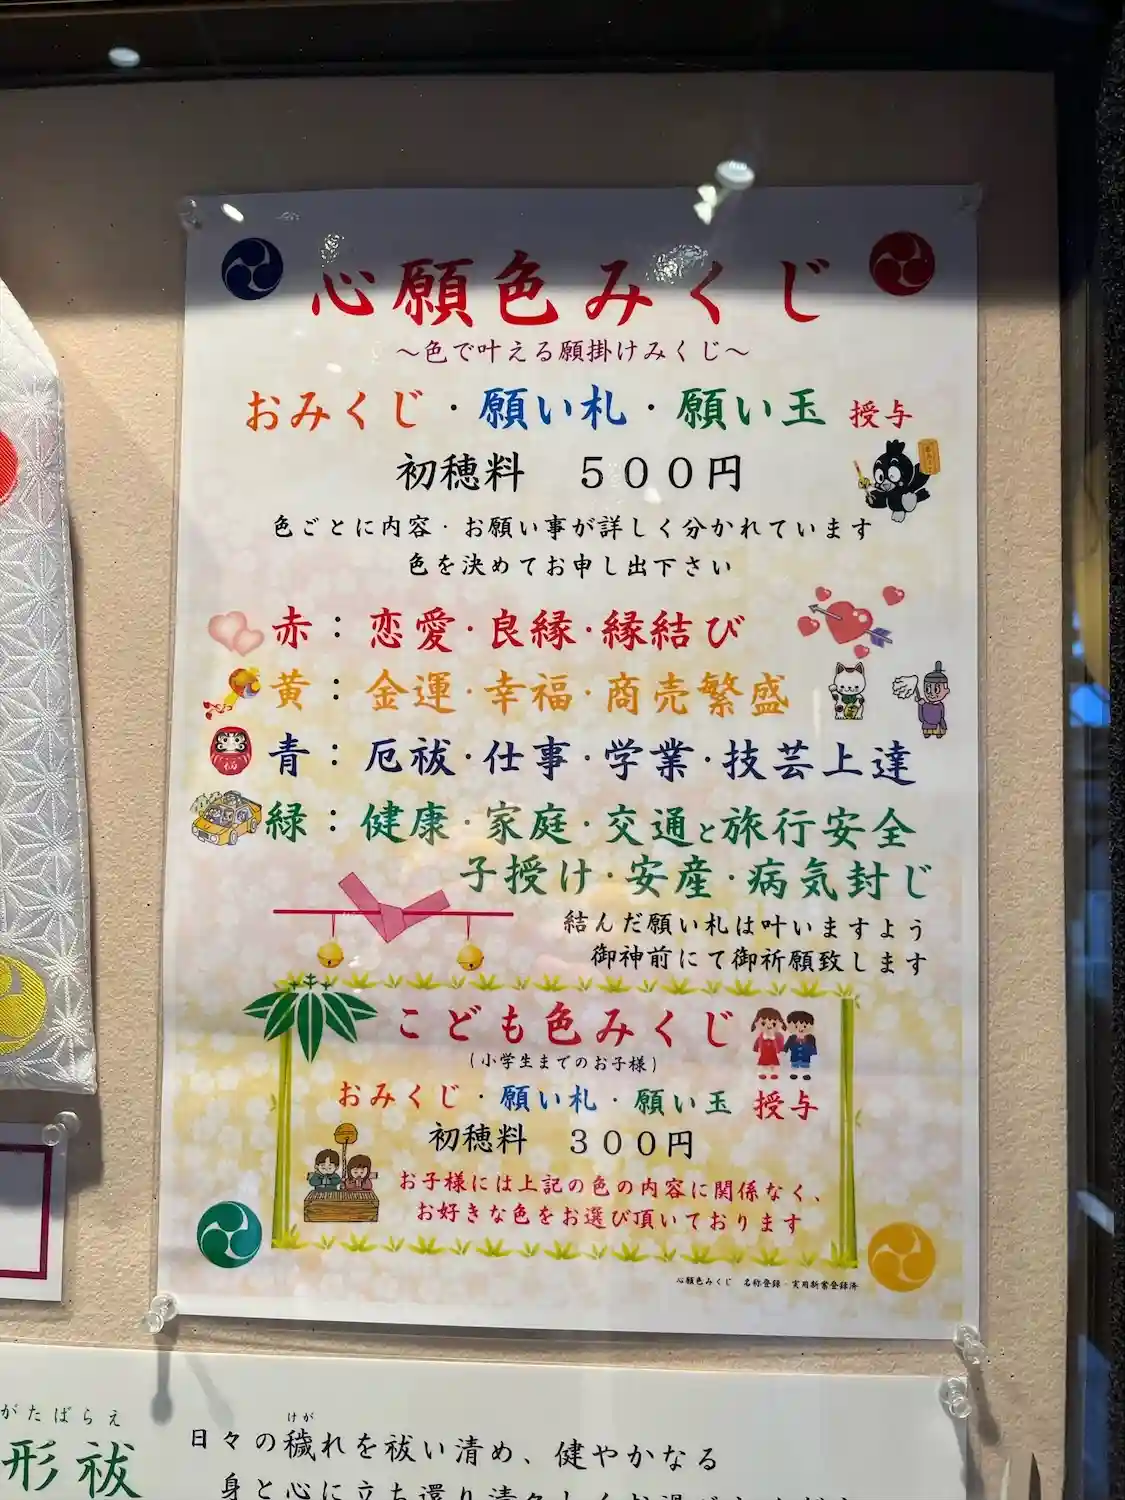 心願色みくじ
～色で叶える願掛けみくじ～
おみくじ・願い札・願い玉 授与
初穂料 ５００円
色ごとに内容・お願い事が詳しく分かれています
色を決めてお申し出下さい
赤：恋愛・良縁・縁結び
黄：金運・幸福・商売繁盛
青：厄祓・仕事・学業・技芸上達
緑：健康・家庭・交通と旅行安全
子授け・安産・病気封じ
結んだ願い札は叶いますよう
御神前にて御祈願致します
こども色みくじ
(小学生までのお子様)
おみくじ・願い札・願い玉 授与
初穂料 ３００円
お子様には上記の色の内容に関係なく、
お好きな色をお選び頂いております
心願色みくじ 名称登録・実用新案登録済
がたばらえ
形祓
けが
日々の穢れを祓い清め、健やかなる
身と心に立ち還り